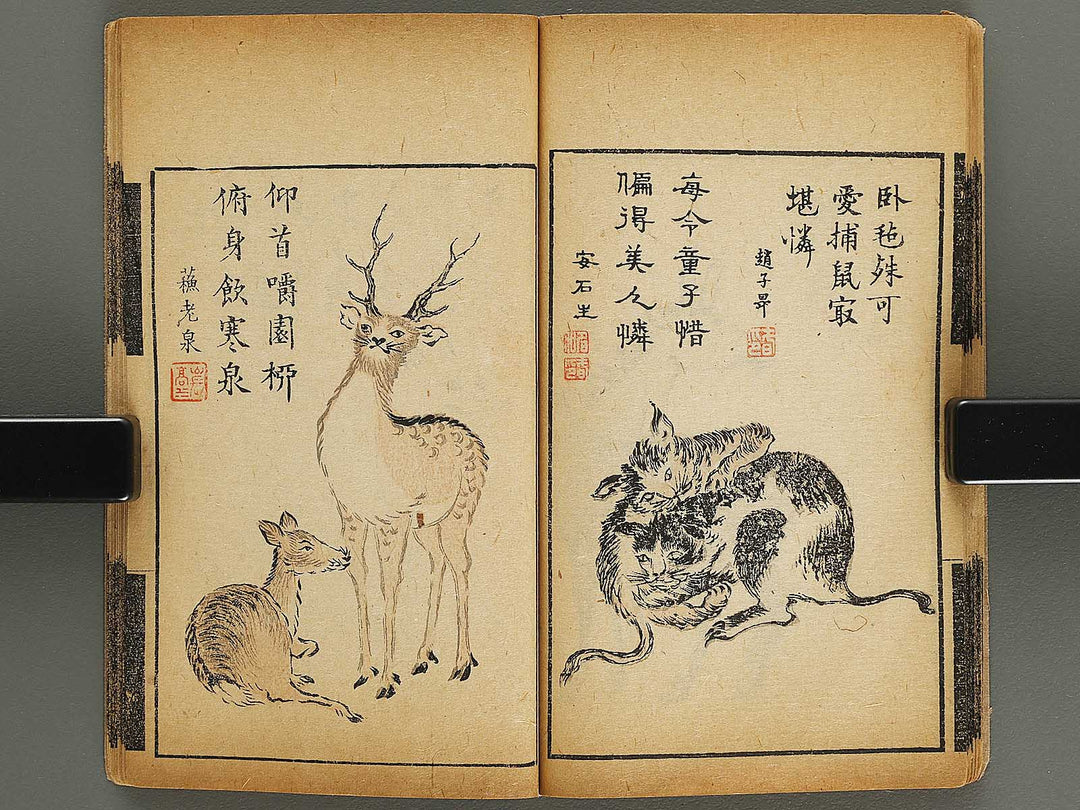 卧毡殊可
愛捕鼠㝡
堪憐
趙子昂
每令童子惜
偏得美人憐
安石生
仰首嚼園柳
俯身飲寒泉
蘓老泉